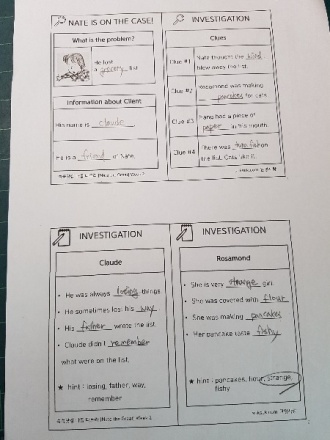 NATE IS ON THE CASE!
What is the problem?
He lost
a grocery list
Information about Client
His name is claude
He is a friend of Nate.
INVESTIGATION
Clues
Clue #1
Nate thought the wind
blew away the list.
Clue #2
Rosamond was making
pancakes for cats
Clue #3
Fang had a piece of
paper in his mouth.
Clue #4
There was
INVESTIGATION
Claude
• He was always losing things
• He sometimes lost his way
• His father wrote the list.
• Claude didn't remember
what were on the list.
★ hint : losing, father, way,
remember
INVESTIGATION
Rosamond
• She is very strange girl
• She was covered with flour
• She was making pancakes
• Her pancake taste fishy
★ hint : pancakes, flour, strange,
fishy